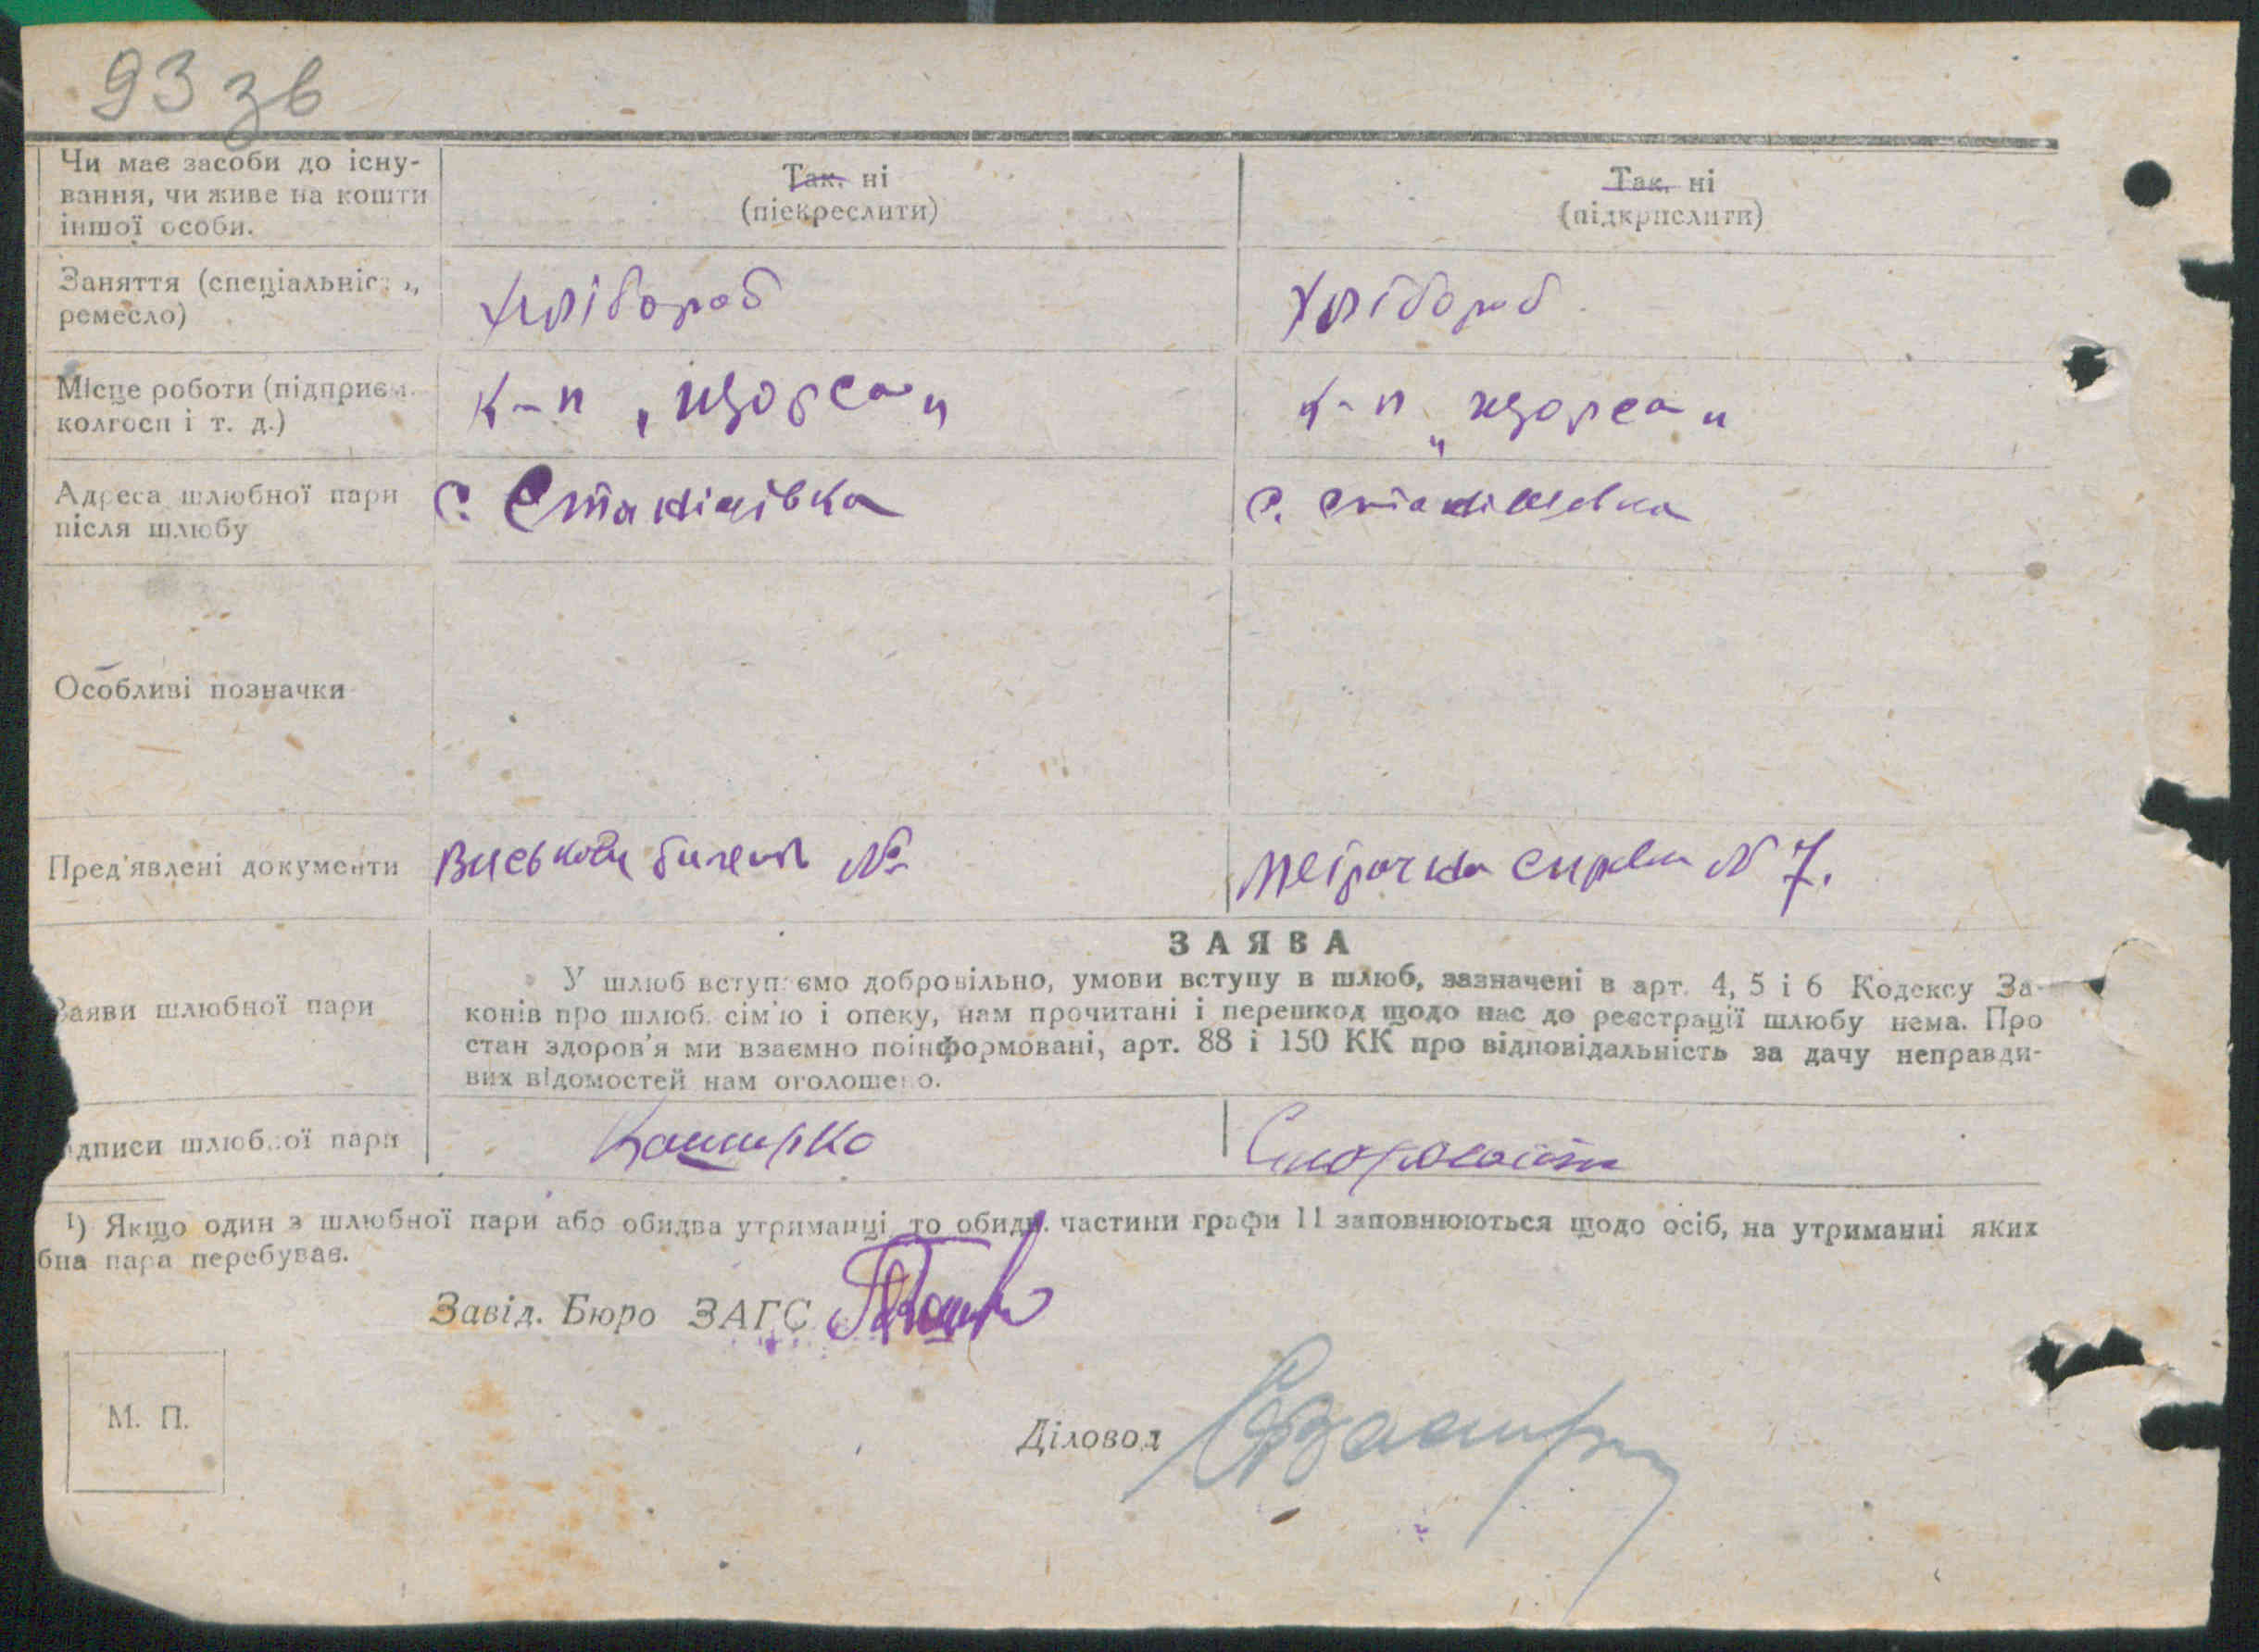 93 зв
Чи має засоби до існу-
вання, чи живе на кошти
іншої особи.
Так. ні
(піекреслити)
Так. ні
(підкрислити)
Заняття (спеціальність,
ремесло)
Хлібороб
Хлібороб
Місце роботи (підприєм.
колгосп і т. д.)
к-п „Щорса"
к-п „Щорса"
Адреса шлюбної пари
після шлюбу
с. Станішівка
с. Станішевка
Особливі позначки
Пред'явлені документи
білет №
Метрична справка № 7.
ЗАЯВА
Заяви шлюбної пари
У шлюб вступаємо добровільно, умови вступу в шлюб, зазначені в арт. 4, 5 і 6 Кодексу За-
конів про шлюб, сім'ю і опеку, нам прочитані і перешкод щодо нас до реєстрації шлюбу нема. Про
стан здоров'я ми взаємно поінформовані, арт. 88 і 150 КК про відповідальність за дачу неправди-
вих відомостей нам оголошено.
ідписи шлюбної пари
1) Якщо один з шлюбної пари або обидва утриманці, то обидві частини графи 11 заповнюються щодо осіб, на утриманні яких
бна пара перебуває.
Завід. Бюро ЗАГС
М. П.
Діловод